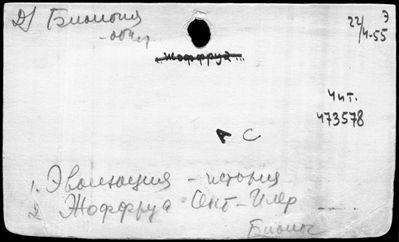 Д/ Биология
- общ
22/4-55 Э
Жоффруа...
Чит.
473578
А С
1. Эволюция - история
2 Жоффруа Сент-Илер
Биолог